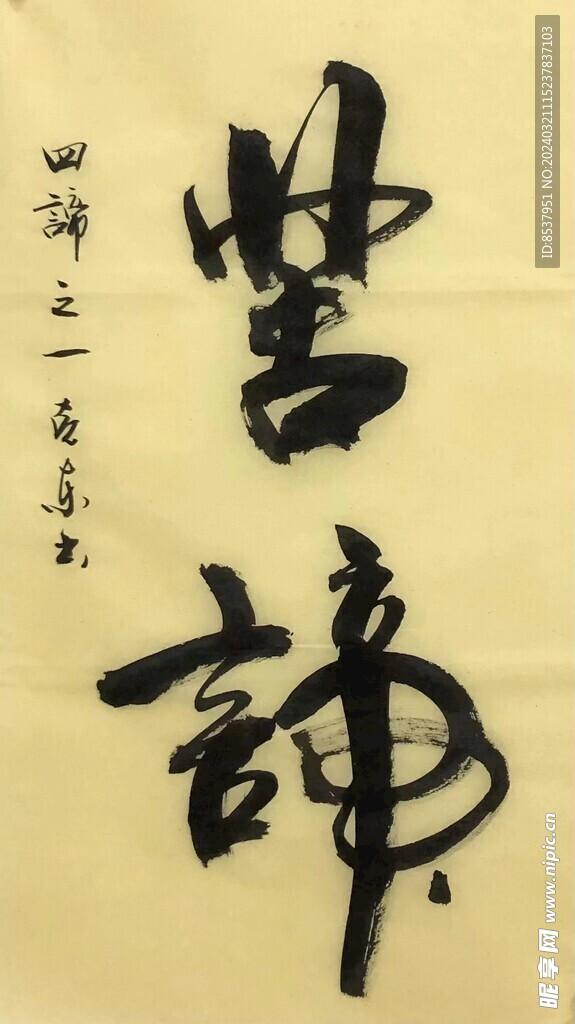 苦諦
四諦之一 克东书
ID:8537951 NO:20240321115237837103
昵享网 www.nipic.cn